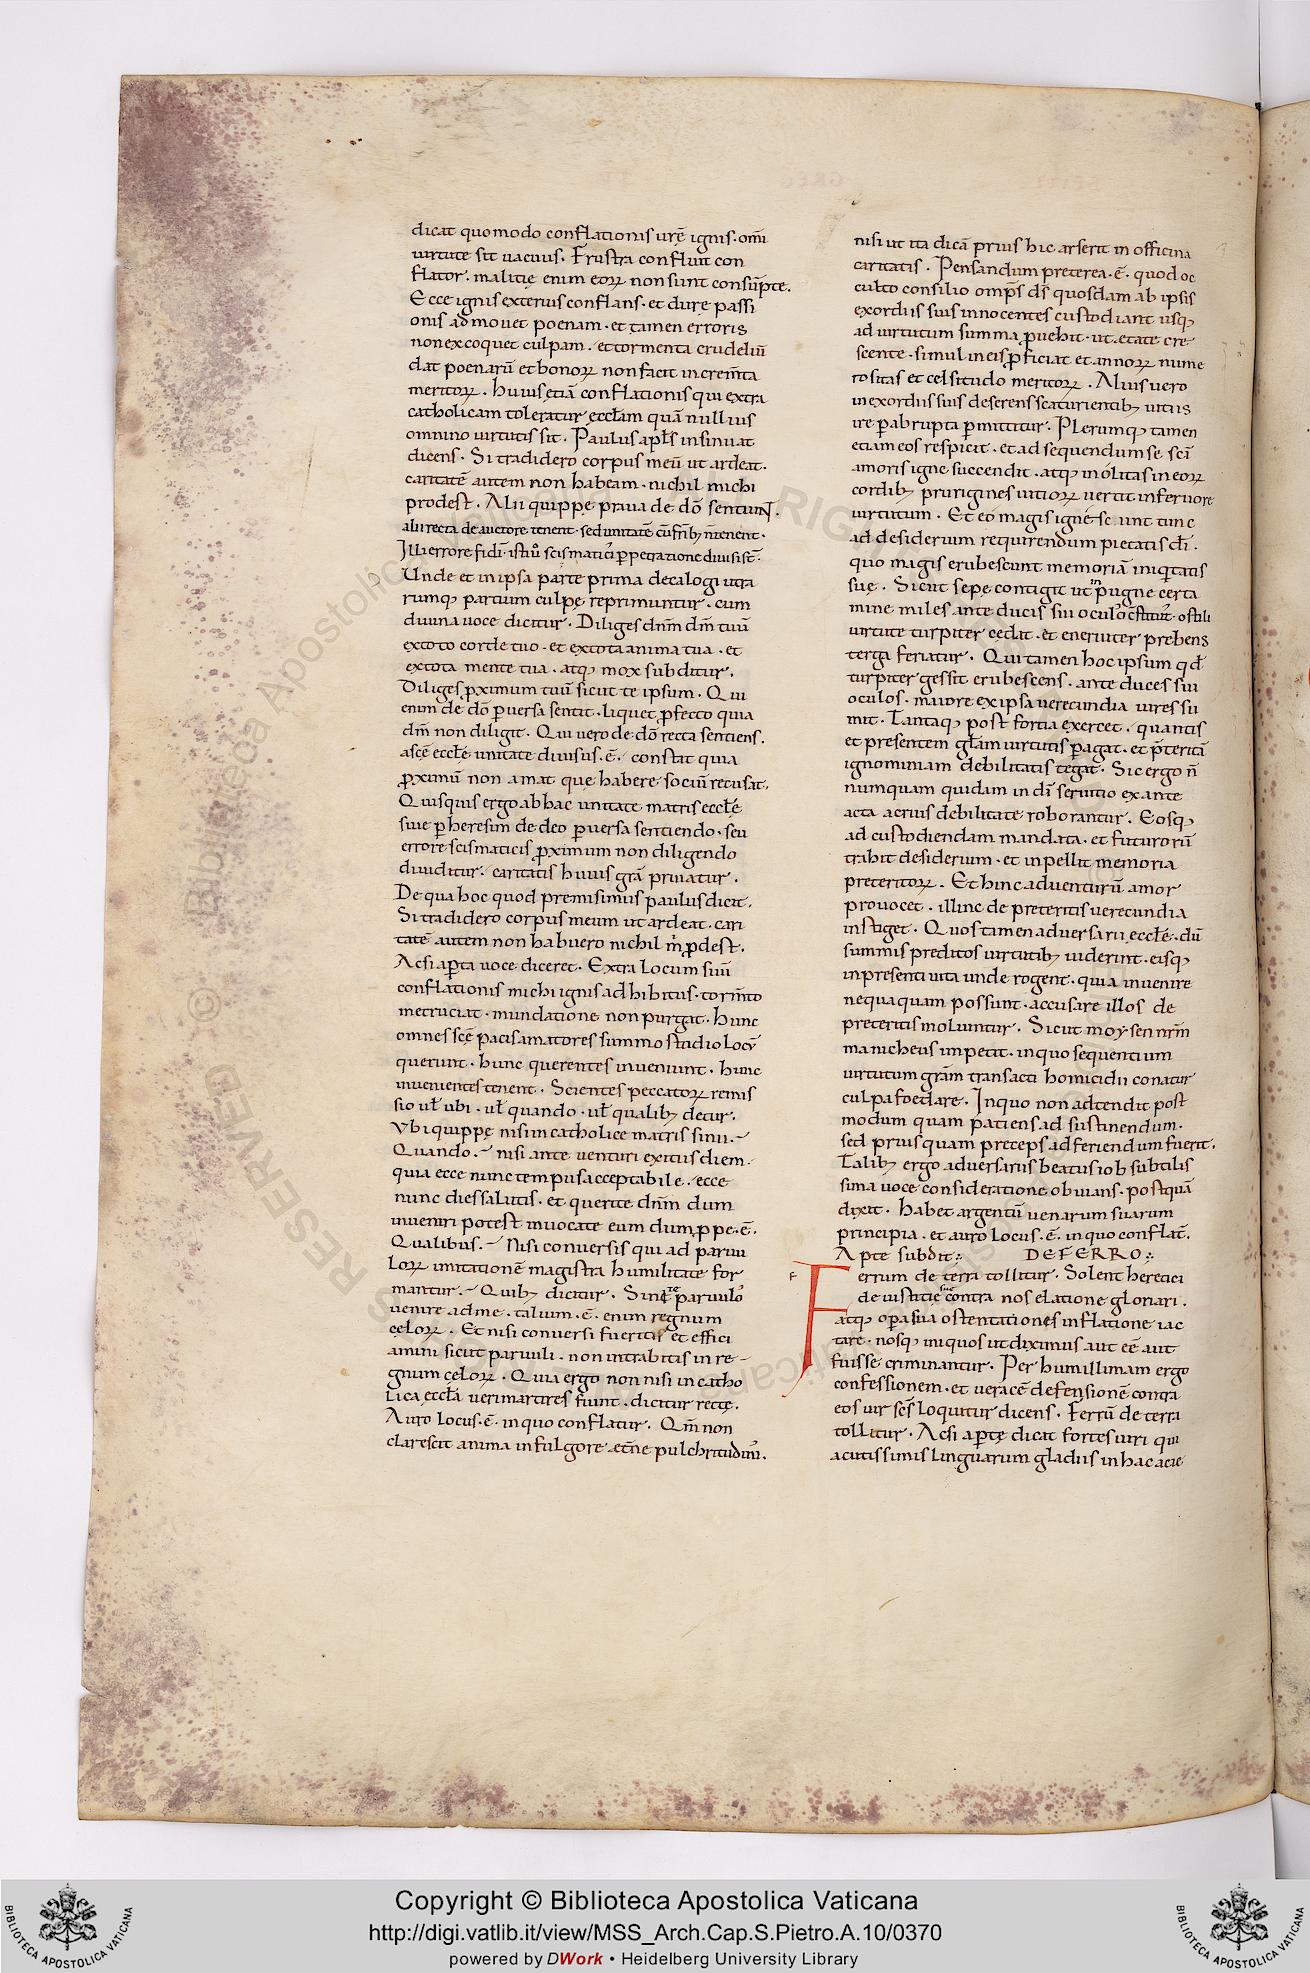 dicat quomodo conflationis urẽ ignis · om̃i
uirtute sit uacuus. Frustra confluit con
flator · malitię enim eoꝝ non sunt consũpte.
Ecce ignis exterius conflans · et dure passi
onis admouet poenam · et tamen erroris
non excoquet culpam · et tormenta crudeliũ
dat poenarũ et bonoꝝ non facit increm̃ta
meritoꝝ. Huius etiã conflationis qui extra
catholicam toleratur eccł̃am quã nullius
omnino uirtutis sit. Paulus apł̃s insinuat
dicens. Si tradidero corpus meũ ut ardeat.
caritatẽ autem non habeam · nichil michi
prodest. Alii quippe praua de dõ sentiuÑ.
alii recta de auctore tenent · sed unitatẽ cũ frĩbꝫ ñ tenent.
Illi errore fidi · isti ũ scismatici ꝑpetratione diuisi st̃.
Unde et in ipsa parte prima decalogi utra
rumqꝫ partium culpę reprimuntur · cum
diuina uoce dicitur. Diliges dñm dm̃ tuũ
ex toto corde tuo · et ex tota anima tua · et
ex tota mente tua · atqꝫ mox subditur.
Diliges ꝓximum tuũ sicut te ipsum. Qui
enim de dõ ꝑuersa sentit · liquet ꝓfecto quia
dm̃ non diligit. Qui uero de dõ recta sentiens.
a scẽ eccł̃e unitate diuisus · ẽ · constat quia
ꝓximũ non amat quẽ habere sociũ recusat.
Quisquis ergo ab hac unitate matris eccł̃e
siue ꝑ heresim de deo ꝑuersa sentiendo · seu
errore scismaticis ꝓximum non diligendo
diuiditur · caritatis huius grã priuatur.
De qua hoc quod premisimus paulus dicit.
Si tradidero corpus meum ut ardeat · cari
tatẽ autem non habuero nichil m̃ ꝓdest.
Ac si aꝑta uoce diceret. Extra locum suũ
conflationis michi ignis adhibitus · torm̃to
me cruciat · mundatione non purgat. Hunc
omnes scẽ pacis amatores summo studio locũ
querunt · hunc querentes inueniunt · hunc
inuenientes tenent. Scientes peccatoꝝ remis
sio uł ubi · uł quando · uł qualibꝫ detur.
Ubi quippe nisi in catholice matris sinu.
Quando. nisi ante uenturi exitus diem.
quia ecce nunc tempus acceptabile · ecce
nunc dies salutis · et querite dñm dum
inueniri potest inuocate eum dum ꝓpe · ẽ.
Qualibus. Nisi conuersis qui ad paruu
loꝝ imitationẽ magistra humilitate for
mantur. Quibꝫ dicitur. Sinite paruulo
uenire ad me · talium · ẽ · enim regnum
cęloꝝ. Et nisi conuersi fueritis et effici
amini sicut paruuli · non intrabitis in re
gnum cęloꝝ. Quia ergo non nisi in catho
lica eccł̃a ueri martires fiunt · dicitur rectę.
Auro locus · ẽ · in quo conflatur. Qm̃ non
clarescit anima in fulgore ẽtne pulchritudiñi.
nisi ut ita dicã prius hic arserit in officina
caritatis. Pensandum preterea · ẽ · quod oc
culto consilio omp̃s ds̃ quosdam ab ipsis
exordiis suis innocentes custodiant usqꝫ
ad uirtutum summa ꝓuehit · ut etate cre
scente · simul in eis ꝓficiat et annoꝝ nume
rositas et celsitudo meritoꝝ. Alius uero
in exordiis suis deserens scaturientibꝫ uitiis
ire ꝑ abrupta ꝑmittitur. Plerumqꝫ tamen
etiam eos respicit · et ad sequendum se scĩ
amoris igne succendit · atqꝫ inolitas in eoꝝ
cordibꝫ prurigines uitioꝝ uertit in feruore
uirtutum. Et eo magis igne scunt tunc
ad desiderium requirendum pietatis dĩ.
quo magis erubescunt memoriã iniqꝫtatis
suę. Sicut sepe contigit ut in pugne certa
mine miles ante ducis sui oculo c̃stitut · ostili
uirtute turpiter cedat · et eneruiter prebens
terga feriatur. Qui tamen hoc ipsum qd̃
turpiter gessit erubescens · ante duces sui
oculos · maiore ex ipsa uerecundia uires su
mit. Tantaqꝫ post fortia exercet · quantis
et presentem gł̃am uirtutis ꝑagat · et p̃teritã
ignominiam debilitatis tegat. Sic ergo ñ
numquam quidam in dĩ seruitio ex ante
acta acrius debilitate roborantur. Eosqꝫ
ad custodiendam mandata · et futurorũ
trahit desiderium · et inpellit memoria
preteritoꝝ. Et hinc ad uenturũ amor
prouocet · illinc de preteritis uerecundia
instiget. Quos tamen aduersarii eccł̃e · dũ
summis preditos uirtutibꝫ uiderint · eisqꝫ
in presenti uita unde rogent · quia inuenire
nequaquam possunt · accusare illos de
preteritis moliuntur. Sicut moysen nr̃m
manicheus impetit · in quo sequentium
uirtutum grãm transacti homicidii conatur
culpa foedare. In quo non adtendit post
modum quam patiens ad sustinendum.
sed prius quam preceps ad feriendum fuerit.
Talibꝫ ergo aduersariis beatus iob subtilis
sima uoce consideratione obuians · postquã
dixit. Habet argentũ uenarum suarum
principia · et auro locus · ẽ · in quo conflat̃.
Apte subdit: DE FERRO:
Ferrum de terra tollitur. Solent heretici
de iustitię sue contra nos elatione gloriari.
atqꝫ oꝑa sua ostentationes inflatione iac
tare · nosqꝫ iniquos ut diximus aut eẽ aut
fuisse criminantur. Per humillimam ergo
confessionem · et ueracẽ defensionẽ contra
eos uir scs̃ loquitur dicens. Ferrũ de terra
tollitur. Ac si aꝑtę dicat fortes uiri qui
acutissimis linguarum gladiis in hac acie
Copyright © Biblioteca Apostolica Vaticana
http://digi.vatlib.it/view/MSS_Arch.Cap.S.Pietro.A.10/0370
powered by DWork • Heidelberg University Library
BIBLIOTECA APOSTOLICA VATICANA
BIBLIOTECA APOSTOLICA VATICANA